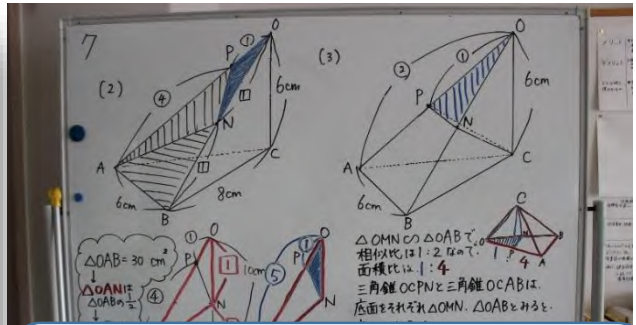 7
(2)
O
①
P
④
1
N
6cm
1
A
C
6cm
B
8cm
(3)
O
②
①
6cm
P
N
A
C
B
△OAB=30cm²
↓
△OANは
△OABの1/2
↓
O
①
P
④
1
10cm
N
O
①
P
⑤
N
△OMNの△OABで
相似比は1:2なので、
面積比は1:4
三角錐OCPNと三角錐OCABは、
底面をそれぞれ△OMN、△OABとみると、
C
O
M
B
1
P
4
A